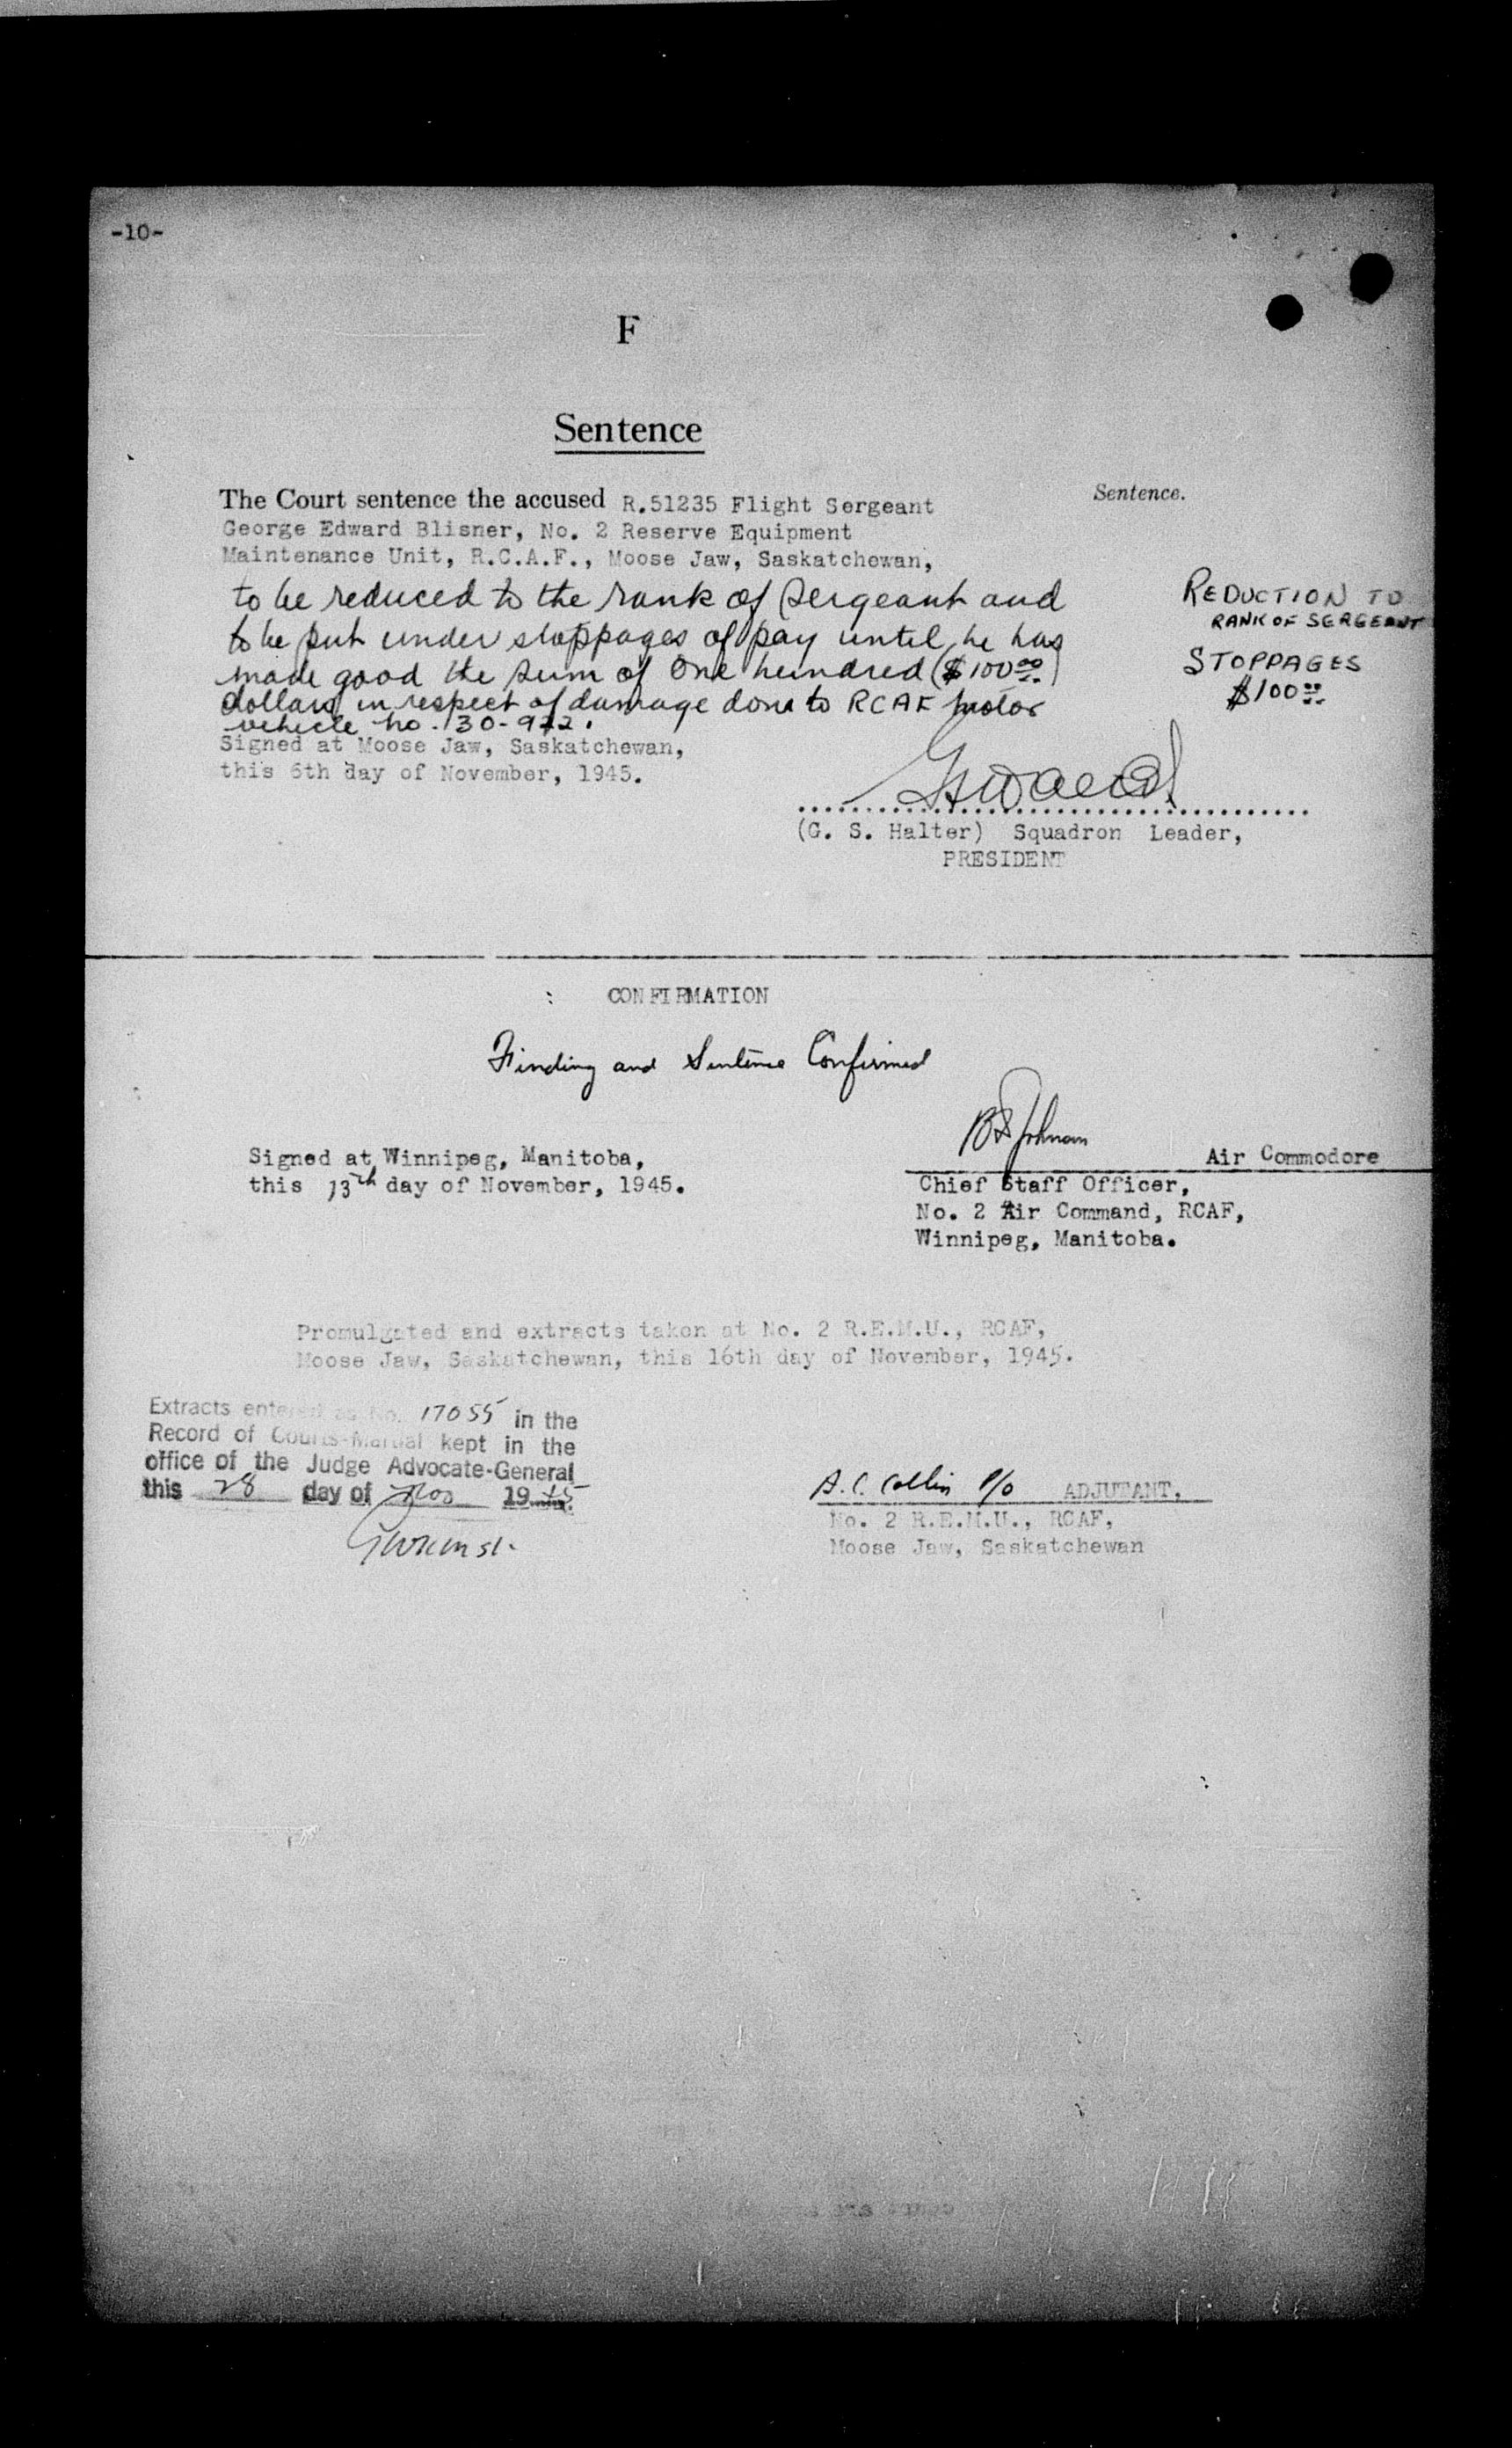 -10-
F
Sentence
The Court sentence the accused R.51235 Flight Sergeant
George Edward Blisner, No. 2 Reserve Equipment
Maintenance Unit, R.C.A.F., Moose Jaw, Saskatchewan,
to be reduced to the rank of Sergeant and
to be put under stoppages of pay until he has
made good the sum of One hundred ($100.00)
dollars in respect of damage done to RCAF motor
vehicle no. 30-922.
Sentence.
REDUCTION TO
RANK OF SERGEANT
STOPPAGES
$100.00
Signed at Moose Jaw, Saskatchewan,
this 6th day of November, 1945.
(G. S. Halter) Squadron Leader,
PRESIDENT
CONFIRMATION
Finding and Sentence Confirmed
Signed at Winnipeg, Manitoba,
this 13th day of November, 1945.
Air Commodore
Chief Staff Officer,
No. 2 Air Command, RCAF,
Winnipeg, Manitoba.
Promulgated and extracts taken at No. 2 R.E.M.U., RCAF,
Moose Jaw, Saskatchewan, this 16th day of November, 1945.
Extracts entered as No. 17055 in the
Record of Courts-Martial kept in the
office of the Judge Advocate-General
this 28 day of Nov 1945
A. C. Collin P/O ADJUTANT,
No. 2 R.E.M.U., RCAF,
Moose Jaw, Saskatchewan